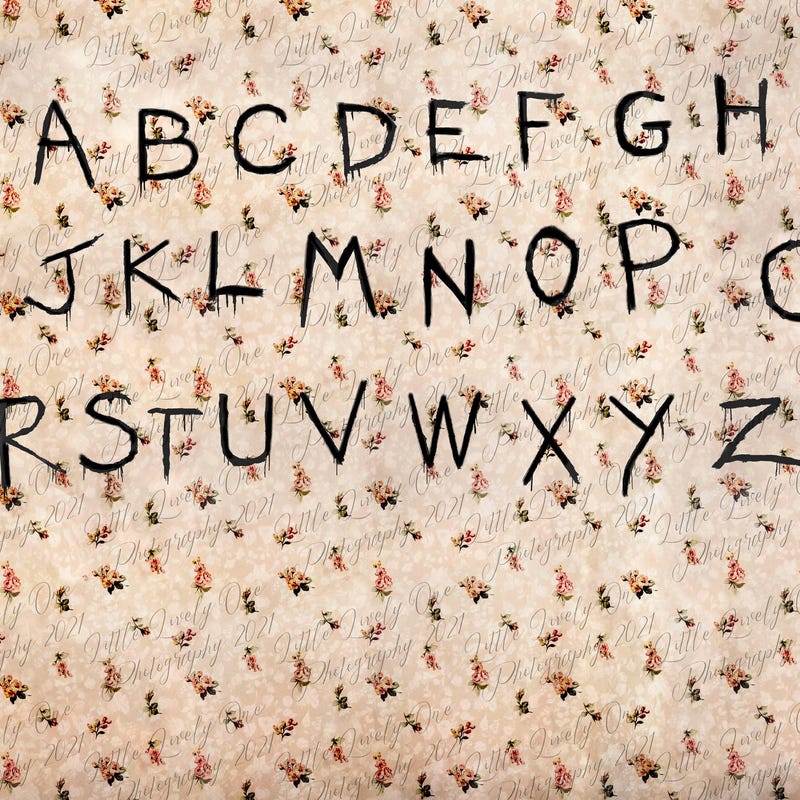 A B C D E F G H
J K L M N O P
R S T U V W X Y Z
Little Lively One
Photography 2021